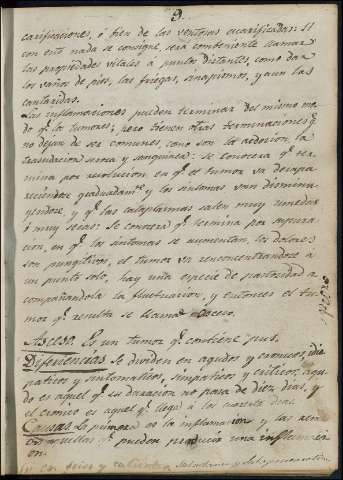 9.
carificaciones, ó bien de las ventosas escarificadas: si
con esto nada se consigue, sera combeniente llamar
las propiedades vitales á puntos distantes, como dar
los vaños de pies, las friegas, sinapismos, y aun las
cantaridas.
Las inflamaciones pueden terminar del mismo mo-
do qe. los tumores; pero tienen otras terminaciones qe.
no dejan de ser comunes, como son la adecion, la
trasudacion serosa y sanguinea: se conocera qe. ter-
mina por resolucion, en qe. el tumor va desapa-
reciendo graduadamte. y los sintomas van disminu-
yendose, y qe. las cataplasmas salen muy umedas
ó muy secas: Se conocerá qe. termina por supura-
cion, en qe. los sintomas se aumentan, los dolores
son pungitivos, el tumor va reconcentrandose á
un punto solo, hay una especie de pastosidad a-
compañandola la fluctuacion, y entonces el tu-
mor qe. resulta se llama Acseso.
Acseso. Es un tumor qe. contiene pus.
Diferiencias. Se dividen en agudos y cronicos, idio-
paticos y sintomaticos, simpaticos y criticos; agu-
do es aquel qe. su duracion no pasa de diez dias, y
el cronico es aquel qe. llega á los noventa dias.
Causas. La primera es la inflamacion y las
aquellas qe. pueden producir una inflamac-
ion.